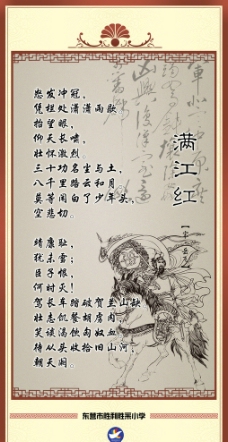 满江红
怒发冲冠,
凭栏处潇潇雨歇
抬望眼,
仰天长啸,
壮怀激烈
三十功名尘与土,
八千里路云和月
莫等闲白了少年头,
空悲切。
靖康耻,
犹未雪;
臣子恨,
何时灭!
驾长车踏破贺兰山缺
壮志饥餐胡虏肉,
笑谈渴饮匈奴血
待从头收拾旧山河,
朝天阙。
东营市胜利胜东小学